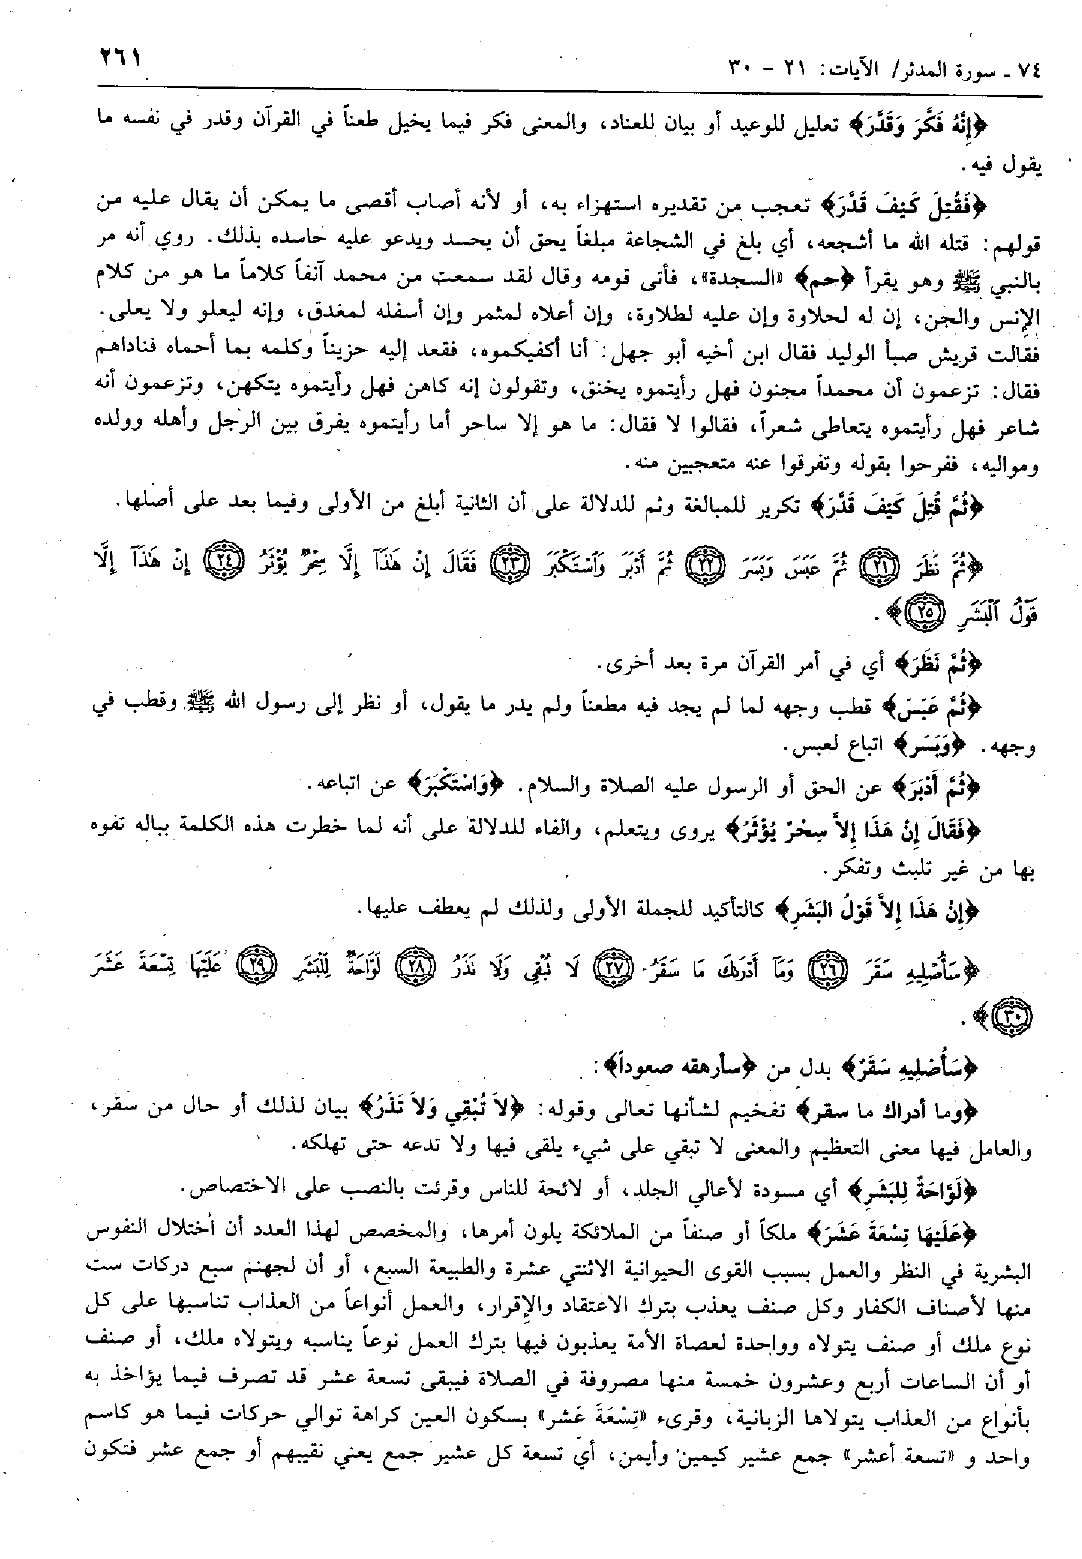 ٢٦١
٧٤ ـ سورة المدثر/ الآيات: ٢١ - ٣٠
﴿إِنَّهُ فَكَّرَ وَقَدَّرَ﴾ تعليل للوعيد أو بيان للعناد، والمعنى فكر فيما يخيل طعناً في القرآن وقدر في نفسه ما
يقول فيه.
﴿فَقُتِلَ كَيْفَ قَدَّرَ﴾ تعجب من تقديره استهزاء به، أو لأنه أصاب أقصى ما يمكن أن يقال عليه من
قولهم: قتله الله ما أشجعه، أي بلغ في الشجاعة مبلغاً يحق أن يحسد ويدعو عليه حاسده بذلك. روي أنه مر
بالنبي ﷺ وهو يقرأ ﴿حم﴾ «السجدة»، فأتى قومه وقال لقد سمعت من محمد آنفاً كلاماً ما هو من كلام
الإِنس والجن، إن له لحلاوة وإن عليه لطلاوة، وإن أعلاه لمثمر وإن أسفله لمغدق، وإنه ليعلو ولا يعلى.
فقالت قريش صبأ الوليد فقال ابن أخيه أبو جهل: أنا أكفيكموه، فقعد إليه حزيناً وكلمه بما أحماه فناداهم
فقال: تزعمون أن محمداً مجنون فهل رأيتموه يخنق، وتقولون إنه كاهن فهل رأيتموه يتكهن، وتزعمون أنه
شاعر فهل رأيتموه يتعاطى شعراً، فقالوا لا فقال: ما هو إلا ساحر أما رأيتموه يفرق بين الرجل وأهله وولده
ومواليه، ففرحوا بقوله وتفرقوا عنه متعجبين منه.
﴿ثُمَّ قُتِلَ كَيْفَ قَدَّرَ﴾ تكرير للمبالغة وثم للدلالة على أن الثانية أبلغ من الأولى وفيما بعد على أصلها.
﴿ثُمَّ نَظَرَ ٢١ ثُمَّ عَبَسَ وَبَسَرَ ٢٢ ثُمَّ أَدْبَرَ وَٱسْتَكْبَرَ ٢٣ فَقَالَ إِنْ هَٰذَآ إِلَّا سِحْرٌ يُؤْثَرُ ٢٤ إِنْ هَٰذَآ إِلَّا
قَوْلُ ٱلْبَشَرِ ٢٥﴾.
﴿ثُمَّ نَظَرَ﴾ أي في أمر القرآن مرة بعد أخرى.
﴿ثُمَّ عَبَسَ﴾ قطب وجهه لما لم يجد فيه مطعناً ولم يدر ما يقول، أو نظر إلى رسول الله ﷺ وقطب في
وجهه. ﴿وَبَسَر﴾ اتباع لعبس.
﴿ثُمَّ أَدْبَرَ﴾ عن الحق أو الرسول عليه الصلاة والسلام. ﴿وَاسْتَكْبَرَ﴾ عن اتباعه.
﴿فَقَالَ إِنْ هَذَا إِلاَّ سِحْرٌ يُؤْثَرُ﴾ يروى ويتعلم، والفاء للدلالة على أنه لما خطرت هذه الكلمة بباله تفوه
بها من غير تلبث وتفكر.
﴿إِنْ هَذَا إِلاَّ قَوْلُ البَشَرِ﴾ كالتأكيد للجملة الأولى ولذلك لم يعطف عليها.
﴿سَأُصْلِيهِ سَقَرَ ٢٦ وَمَآ أَدْرَىٰكَ مَا سَقَرُ ٢٧ لَا تُبْقِى وَلَا تَذَرُ ٢٨ لَوَّاحَةٌ لِّلْبَشَرِ ٢٩ عَلَيْهَا تِسْعَةَ عَشَرَ
٣٠﴾.
﴿سَأُصْلِيهِ سَقَرَ﴾ بدل من ﴿سأرهقه صعوداً﴾:
﴿وما أدراك ما سقر﴾ تفخيم لشأنها تعالى وقوله: ﴿لاَ تُبْقِي وَلاَ تَذَرُ﴾ بيان لذلك أو حال من سقر،
والعامل فيها معنى التعظيم والمعنى لا تبقي على شيء يلقى فيها ولا تدعه حتى تهلكه.
﴿لَوَّاحَةٌ لِلبَشَرِ﴾ أي مسودة لأعالي الجلد، أو لائحة للناس وقرئت بالنصب على الاختصاص.
﴿عَلَيْهَا تِسْعَةَ عَشَرَ﴾ ملكاً أو صنفاً من الملائكة يلون أمرها، والمخصص لهذا العدد أن أختلال النفوس
البشرية في النظر والعمل بسبب القوى الحيوانية الاثنتي عشرة والطبيعة السبع، أو أن لجهنم سبع دركات ست
منها لأصناف الكفار وكل صنف يعذب بترك الاعتقاد والإِقرار، والعمل أنواعاً من العذاب تناسبها على كل
نوع ملك أو صنف يتولاه وواحدة لعصاة الأمة يعذبون فيها بترك العمل نوعاً يناسبه ويتولاه ملك، أو صنف
أو أن الساعات أربع وعشرون خمسة منها مصروفة في الصلاة فيبقى تسعة عشر قد تصرف فيما يؤاخذ به
بأنواع من العذاب يتولاها الزبانية، وقرىء «تِسْعَةَ عَشر» بسكون العين كراهة توالي حركات فيما هو كاسم
واحد و «تسعة أعشر» جمع عشير كيمين وأيمن، أي تسعة كل عشير جمع يعني نقيبهم أو جمع عشر فتكون